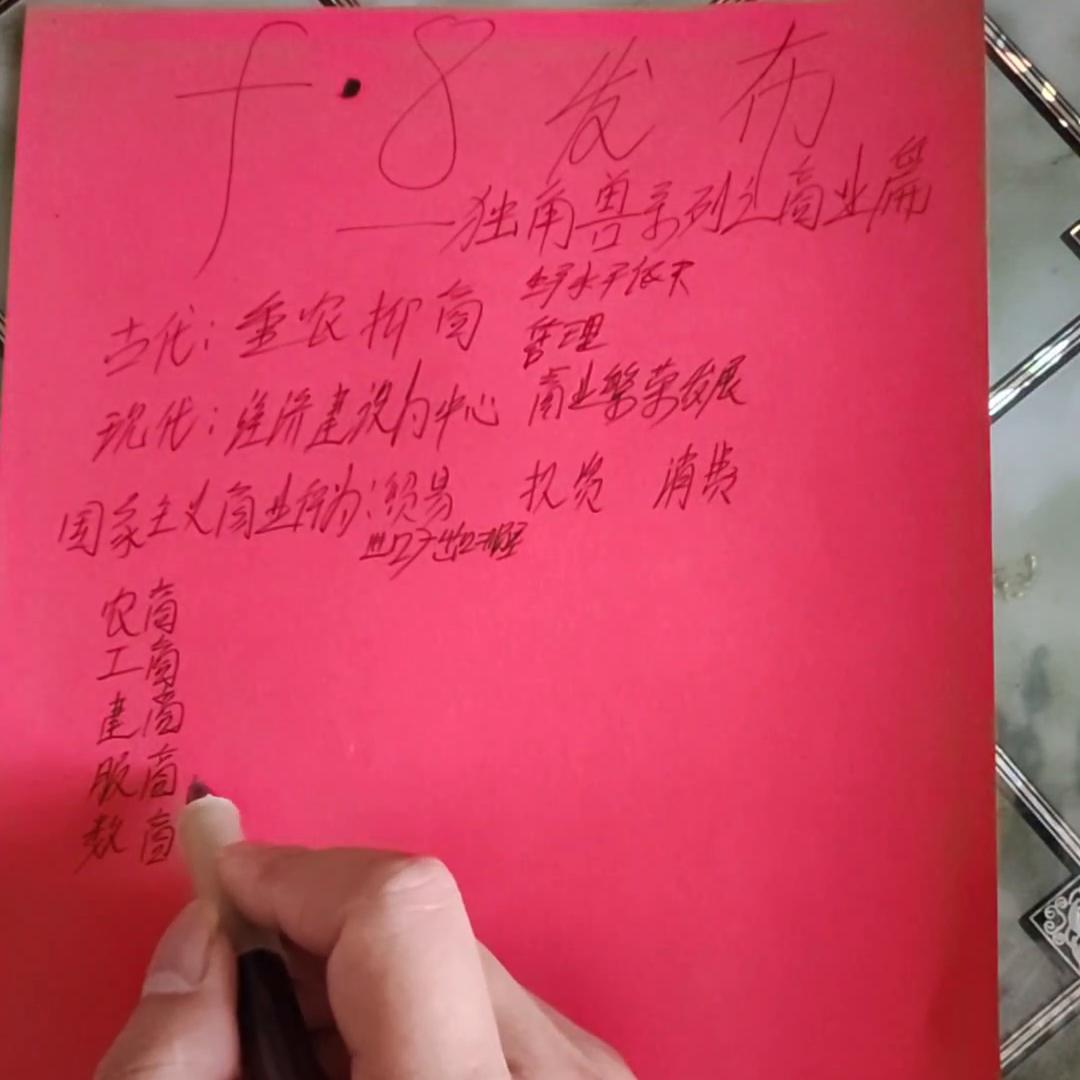 f·8 发布
——独角兽系列之商业篇
古代：重农抑商
管理
现代：经济建设为中心 商业繁荣发展
国家主义商业行为：贸易 投资 消费
农商
工商
建商
服商
数商